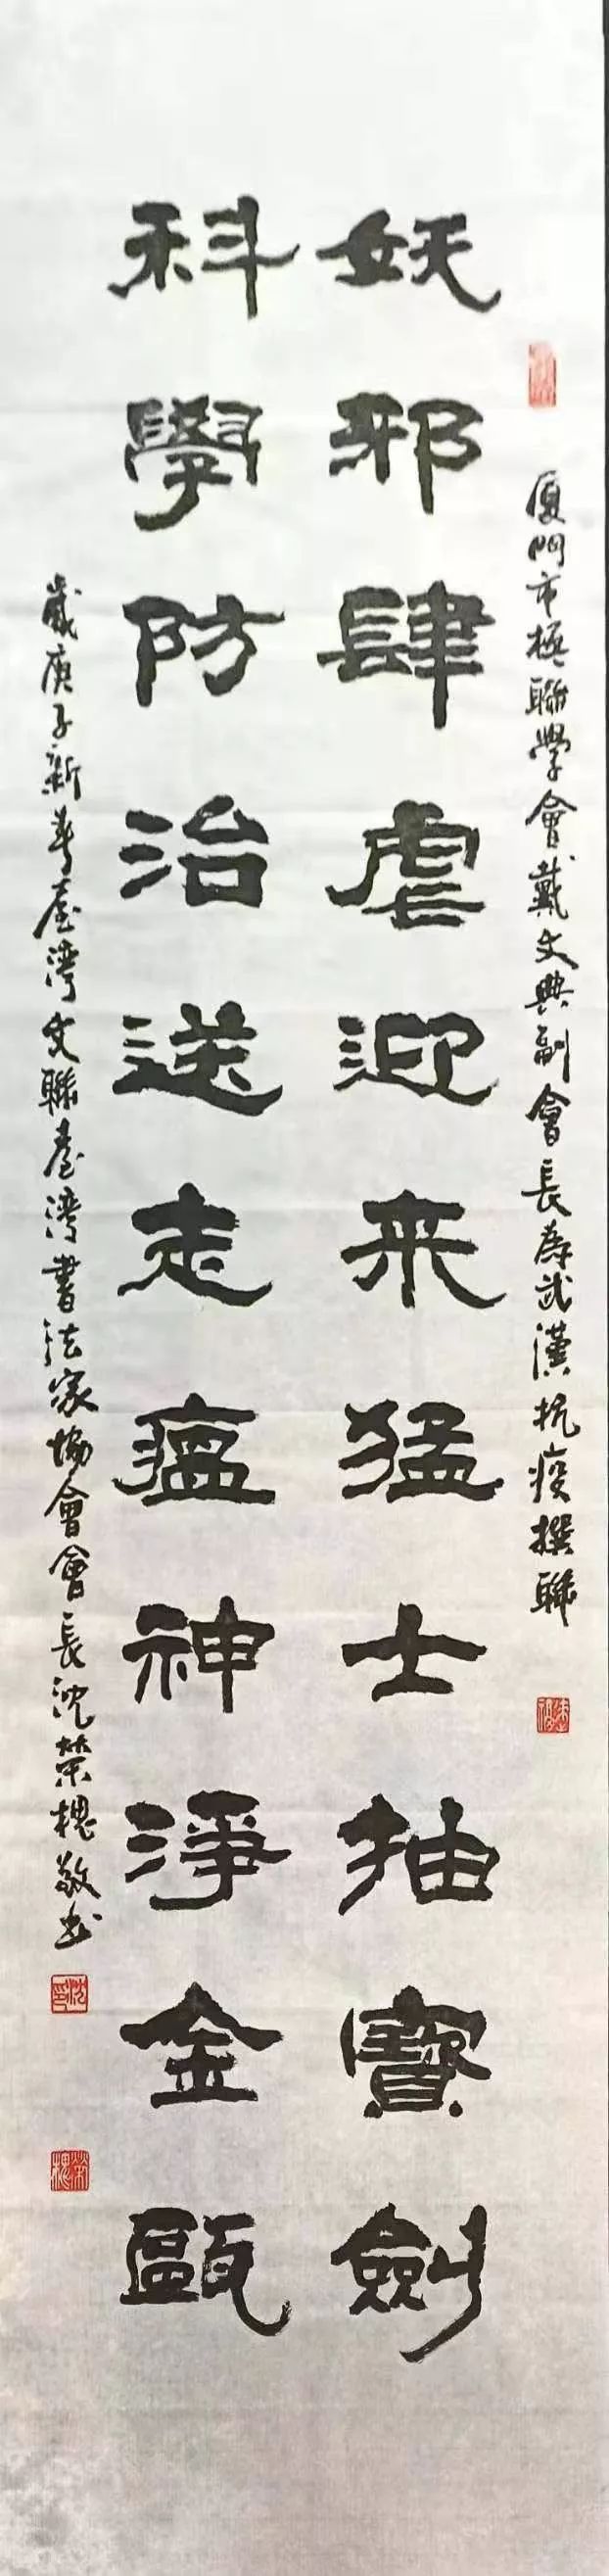 厦門市楹聯學會戴文典副會長為武漢抗疫撰聯
妖邪肆虐迎来猛士抽寶劍
科學防治送走瘟神淨金甌
歲庚子新春臺灣文聯臺灣書法家協會會長沈榮槐敬書
沈印
榮槐